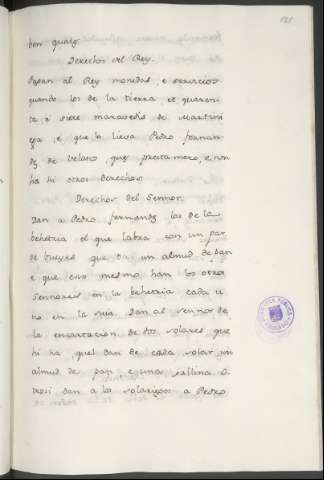 121
ben qualz.
Derechos del Rey.
Pagan al Rey monedas, e servicios
quando los de la tierra, et quaren
ta e siete maravedis de martini
ega, e que la lieva Pedro fernan
dz de Velasco, que es prestamero, e non
ha hi otros derechos
Derechos del Sennor.
Dan a Pedro fernandz los de la
behetria el que labra con un par
de bueyes que da un almud de pan
e que eso mesmo han los otros
Sennores en la behetria cada u
no en la suia. Dan al sennor de
la encartacion de dos solares que
hi ha quel dan de cada solar un
almud de pan e una gallina. O
trosi dan a los solariegos a Pedro